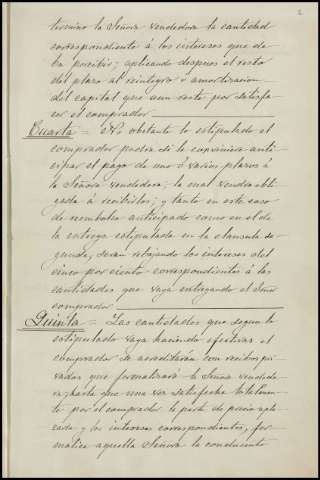 2
termino la Señora vendedora la cantidad
correspondiente á los intereses que de-
ba percibir; aplicando despues el resto
del plazo al reintegro ó amortizacion
del capital que aun reste por satisfa-
cer el comprador.
Cuarta = No obstante lo estipulado el
comprador podrá si le conviniera anti-
cipar el pago de uno ó varios plazos á
la Señora vendedora; la cual vendrá obli-
gada á recibirlos; y tanto en este caso
de reembolso anticipado como en el de
la entrega estipulada en la clausula se-
gunda, serán rebajando los intereses del
cinco por ciento correspondientes á las
cantidades que vaya entregando el Señor
comprador
Quinta = Las cantidades que segun lo
estipulado vaya haciendo efectivas el
comprador se acreditarán con recibos pri-
vados que formalizará la Señora vendedo-
ra, hasta que una vez satisfecho totalmen-
te por el comprador la parte de precio apla-
zada y los intereses correspondientes, for-
malice aquella Señora la conducente